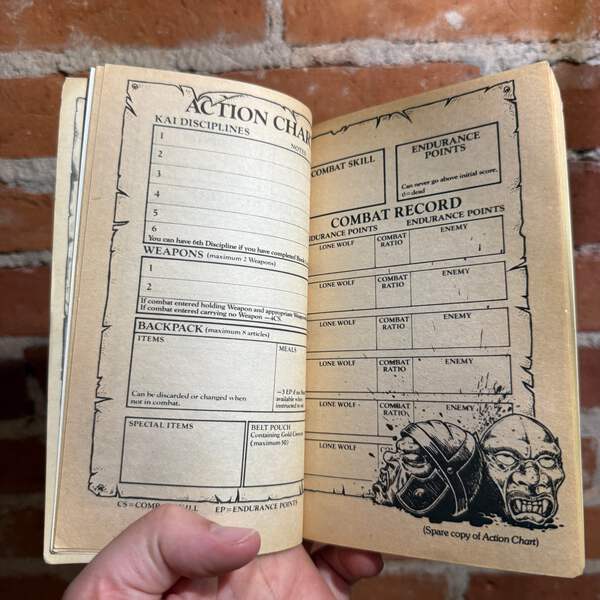 ACTION CHAR
KAI DISCIPLINES
NOTES
1
2
3
4
5
6
You can have 6th Discipline if you have completed Book
WEAPONS (maximum 2 Weapons)
1
2
If combat entered holding Weapon and appropriate
If combat entered carrying no Weapon −4CS.
BACKPACK (maximum 8 articles)
ITEMS
MEALS
Can be discarded or changed when
not in combat.
−3 EP if no
available when
instructed to
SPECIAL ITEMS
BELT POUCH
Containing Gold Crowns
(maximum 50)
CS = COMBAT SKILL EP = ENDURANCE POINTS
COMBAT SKILL
ENDURANCE
POINTS
Can never go above initial score.
0=dead
COMBAT RECORD
ENDURANCE POINTS
ENDURANCE POINTS
LONE WOLF
COMBAT
RATIO
ENEMY
LONE WOLF
COMBAT
RATIO
ENEMY
LONE WOLF
COMBAT
RATIO
ENEMY
LONE WOLF
COMBAT
RATIO
ENEMY
LONE WOLF
COMBAT
RATIO
ENEMY
LONE WOLF
COMBAT
RATIO
(Spare copy of Action Chart)